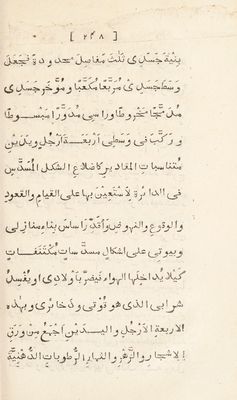 [ ٢٣٨ ]
بنية جسدى ثلث مفاصيل محدودة فجعل
وسط جسدى مربعا مكعبا و مؤخر جسدى
مدمجا مخروطا و راسى مدورا مبسوطا
و ركب فى وسطى اربعة ارجل و يدين
متناسبات المقادير كاضلاع الشكل المسدس
فى الدائرة لاستعين بها على القيام و القعود
و الوقوع و النهوض و اقدر اساس بناء منازلى
و بيوتى على اشكال مسدسات مكتنفات
كيلا يداخلها الهواء فيضر باولادى او يفسد
شرابى الذى هو قوتى و ذخائرى و بهذه
الاربعة الارجل و اليدين اجمع من ورق
الاشجار و الزهر و الثمار الرطوبات الدهنية